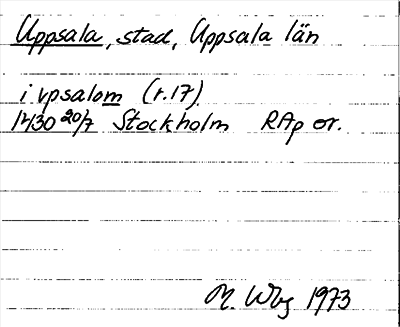 Uppsala, stad, Uppsala län
i vpsalom (r.17)
1430 20/7 Stockholm RAp or.
M. Wbg 1973